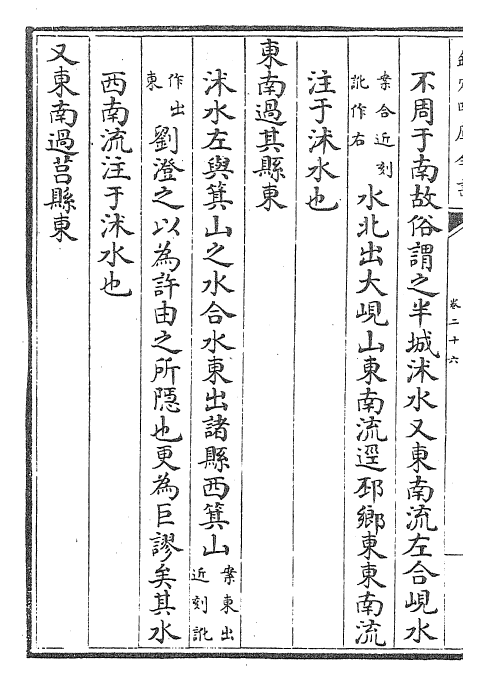 欽定四庫全書
卷二十六
不周于南故俗謂之半城沭水又東南流左合峴水
案合近刻訛作右水北出大峴山東南流逕邳鄉東東南流
注于沭水也
東南過其縣東
沭水左與箕山之水合水東出諸縣西箕山案東出近刻訛
作出東劉澄之以為許由之所隱也更為巨謬矣其水
西南流注于沭水也
又東南過莒縣東